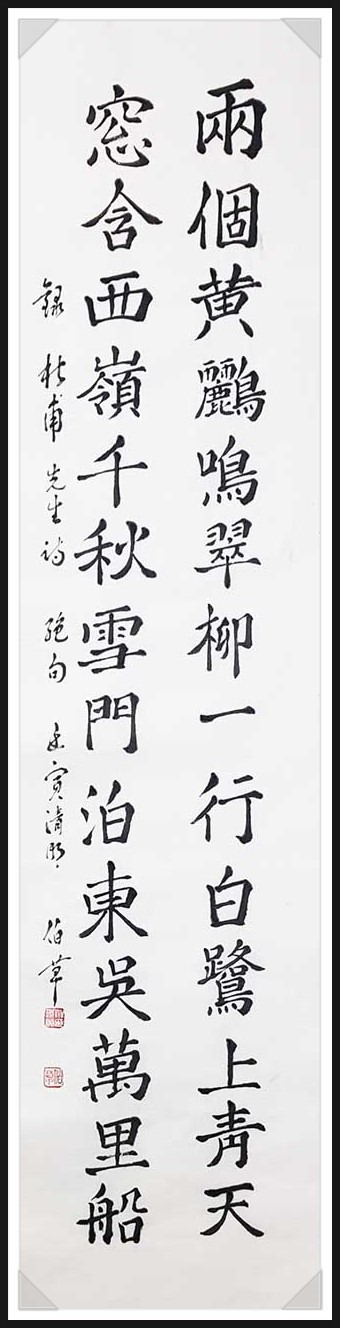 兩個黃鸝鳴翠柳一行白鷺上青天
窓含西嶺千秋雪門泊東吳萬里船
錄 杜甫先生詩 絕句 壬寅清明 伯草